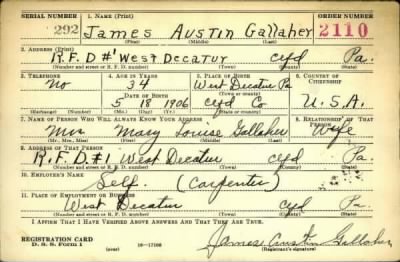 SERIAL NUMBER 1. NAME (Print) ORDER NUMBER
292 James Austin Gallaher 2110
(First) (Middle) (Last)
2. ADDRESS (Print)
R.F.D #1 West Decatur Clfd Pa.
(Number and street or R. F. D. number) (Town) (County) (State)
3. TELEPHONE 4. AGE IN YEARS 5. PLACE OF BIRTH 6. COUNTRY OF CITIZENSHIP
No 34 West Decatur Pa
DATE OF BIRTH (Town or county)
5 18 1906 Clfd Co U.S.A.
(Exchange) (Number) (Mo.) (Day) (Yr.) (State or country)
7. NAME OF PERSON WHO WILL ALWAYS KNOW YOUR ADDRESS 8. RELATIONSHIP OF THAT PERSON
Mrs Mary Louise Gallaher Wife
(Mr., Mrs., Miss) (First) (Middle) (Last)
9. ADDRESS OF THAT PERSON
R.F.D. #1 West Decatur Clfd Pa.
(Number and street or R. F. D. number) (Town) (County) (State)
10. EMPLOYER'S NAME
Self. (Carpenter)
11. PLACE OF EMPLOYMENT OR BUSINESS
West Decatur Clfd Pa.
(Number and street or R. F. D. number) (Town) (County) (State)
I AFFIRM THAT I HAVE VERIFIED ABOVE ANSWERS AND THAT THEY ARE TRUE.
REGISTRATION CARD
D. S. S. Form 1 (over) 16-17105 James Austin Gallaher
(Registrant's signature)